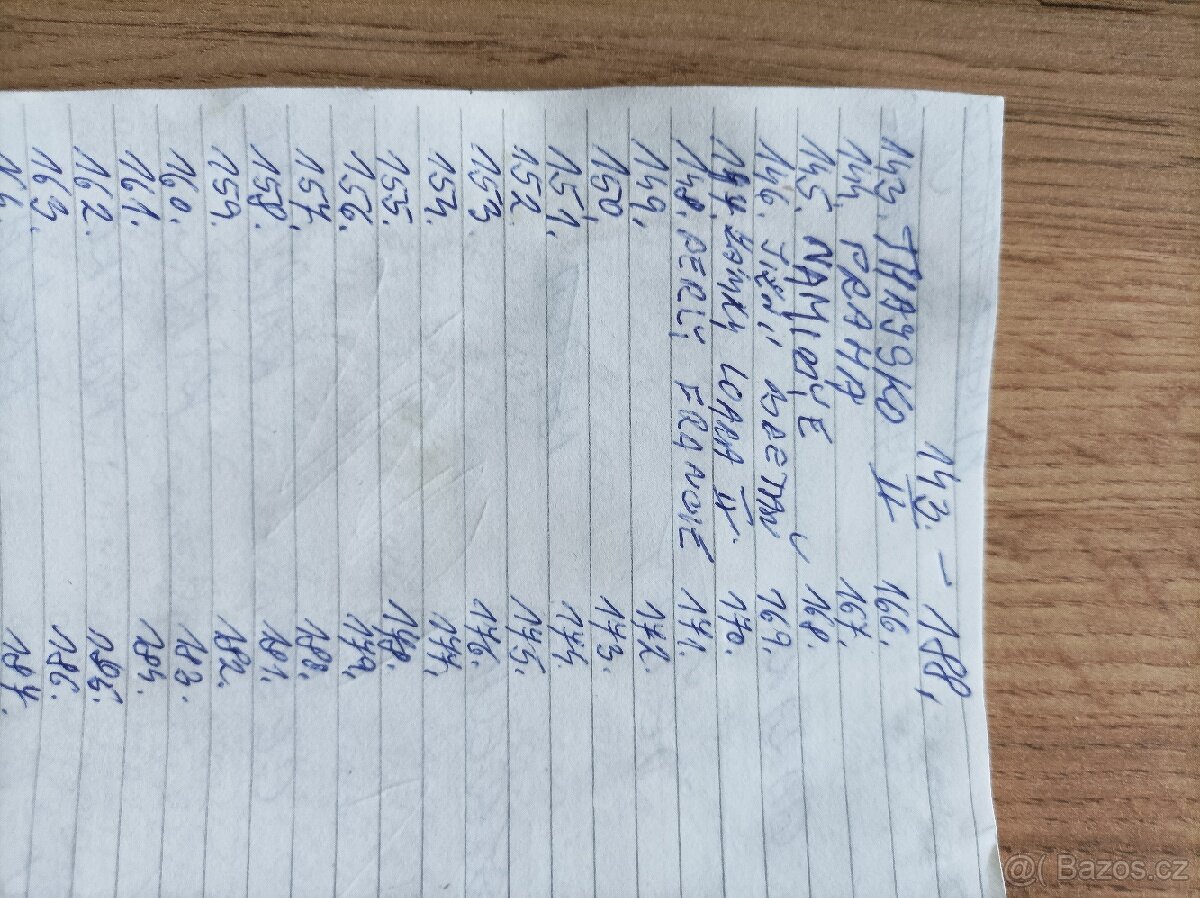 143. - 188.
143. THAJSKO II 166.
144. PRAHA 167.
145. NAMIBIE 168.
146. JIŽNÍ 169.
147. ZÁZNAMY II. 170.
148. PERLY FRANCIE 171.
149. 172.
150. 173.
151. 174.
152. 175.
153. 176.
154. 177.
155. 178.
156. 179.
157. 180.
158. 181.
159. 182.
160. 183.
161. 184.
162. 185.
163. 186.
187.
@( Bazos.cz